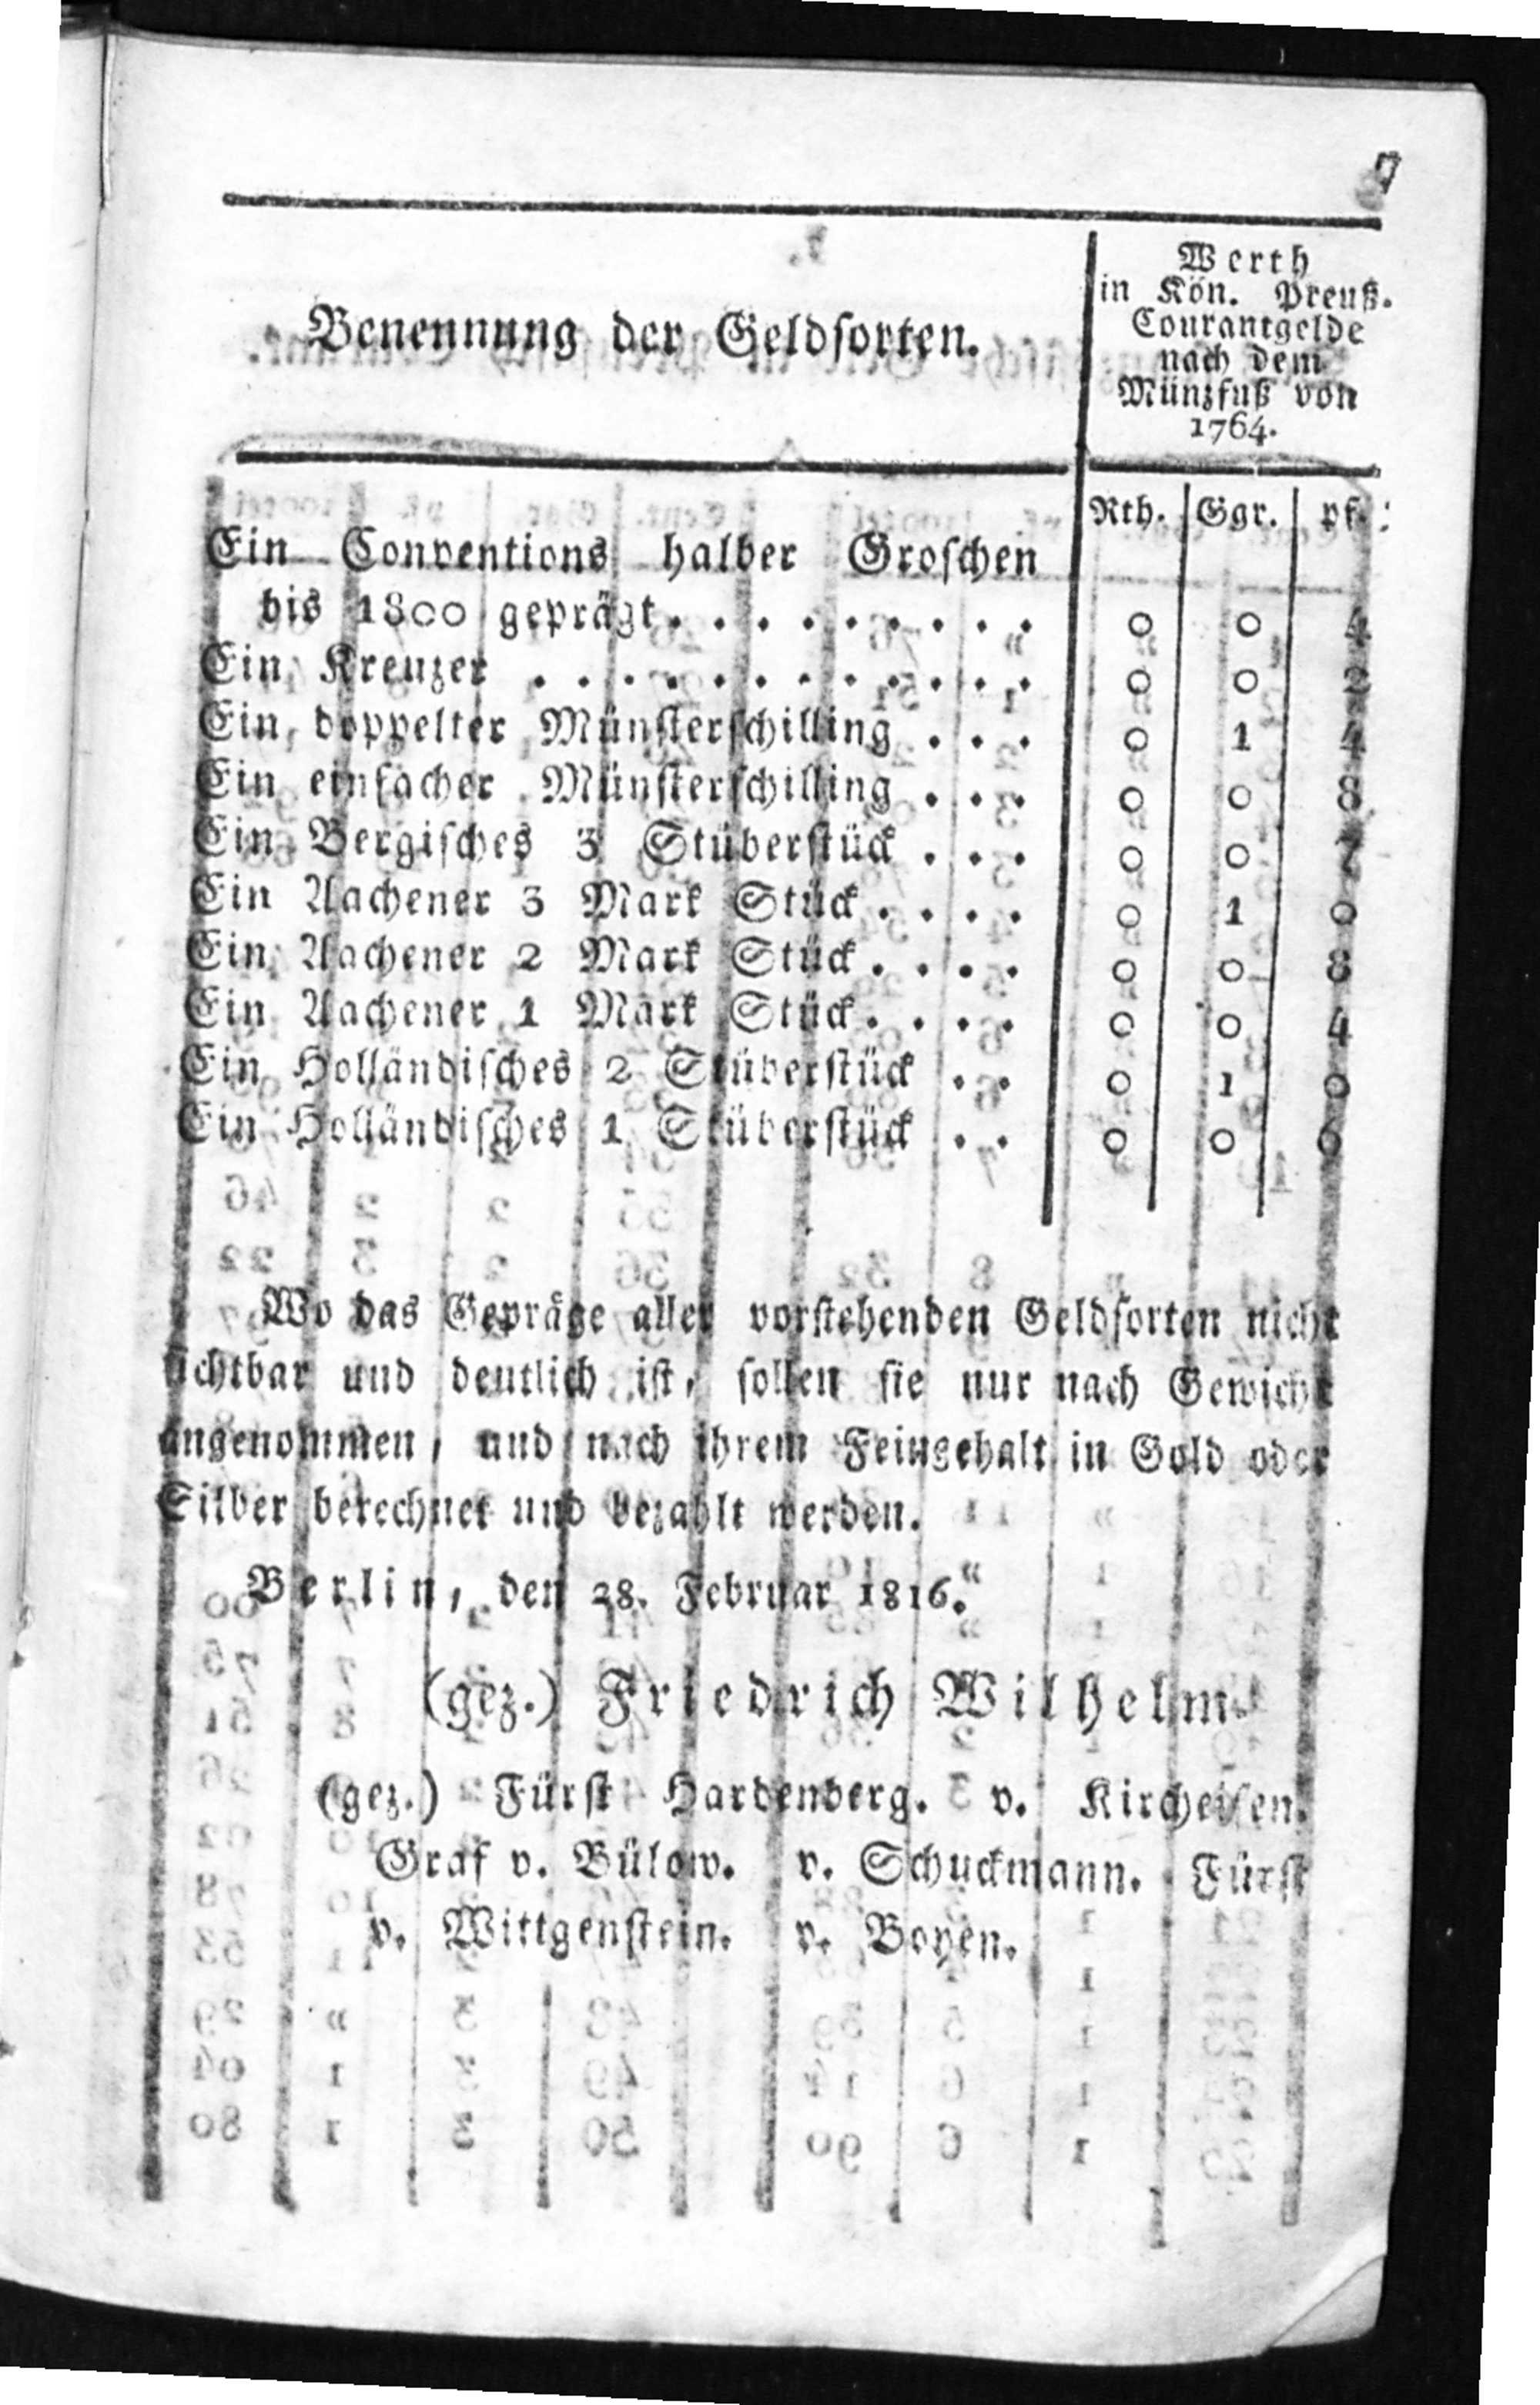 7
Benennung der Geldsorten.
Werth
in Kön. Preuß.
Courantgelde
nach dem
Münzfuß von
1764.
Rth. Ggr. pf.
Ein Conventions halber Groschen
bis 1800 geprägt . . . . . . . . . 0 0 4
Ein Kreuzer . . . . . . . . . . . . 0 0 2
Ein doppelter Münsterschilling . . . 0 1 4
Ein einfacher Münsterschilling . . . 0 0 8
Ein Bergisches 3 Stüberstück . . . 0 0 7
Ein Aachener 3 Mark Stück . . . . 0 1 0
Ein Aachener 2 Mark Stück . . . . 0 0 8
Ein Aachener 1 Mark Stück . . . . 0 0 4
Ein Holländisches 2 Stüberstück . . 0 1 0
Ein Holländisches 1 Stüberstück . . 0 0 6
Wo das Gepräge aller vorstehenden Geldsorten nicht
sichtbar und deutlich ist, sollen sie nur nach Gewicht
angenommen, und nach ihrem Feingehalt in Gold oder
Silber berechnet und bezahlt werden.
Berlin, den 28. Februar 1816.
(gez.) Friedrich Wilhelm.
(gez.) Fürst Hardenberg. v. Kircheisen.
Graf v. Bülow. v. Schuckmann. Fürst
v. Wittgenstein. v. Boyen.